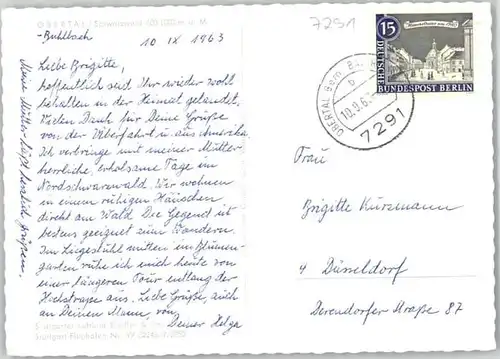 7291
OBERTAL / Schwarzwald
-Buhlbach
10 IX 1963
Liebe Brigitte,
hoffentlich seid Ihr wieder wohl
behalten in der Heimat gelandet.
Vielen Dank für Deine Grüße
von der Überfahrt u. aus Amerika.
Ich verbringe mit meiner Mutter
herrliche, erholsame Tage im
Nordschwarzwald. Wir wohnen
in einem ruhigen Häuschen
direkt am Wald. Die Gegend ist
bestens geeignet zum Wandern.
Im Liegestuhl mitten im Blumen-
garten ruhe ich mich heute von
einer längeren Tour entlang der
Hochstraße aus. Liebe Grüße, auch
an Deinen Mann, von
Deiner Helga
Meine Mutter läßt herzlich grüßen.
15
DEUTSCHE
BUNDESPOST BERLIN
OBERTAL
10.9.6
7291
Frau
Brigitte Kurzmann
4 Düsseldorf
Derendorfer Straße 87